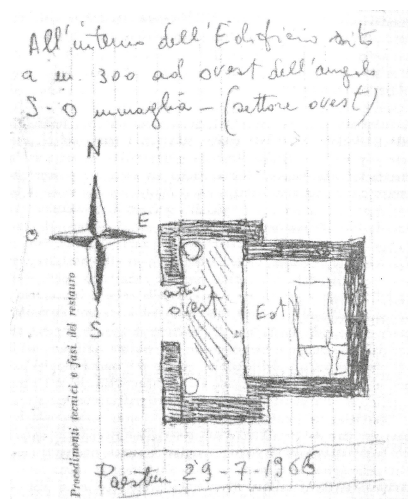 All'interno dell'Edificio sito
a m. 300 ad ovest dell'angolo
S-O muraglia - (settore ovest)
N
O
E
S
settore
ovest
Est
Procedimenti tecnici e fasi del restauro
Paestum 29-7-1966